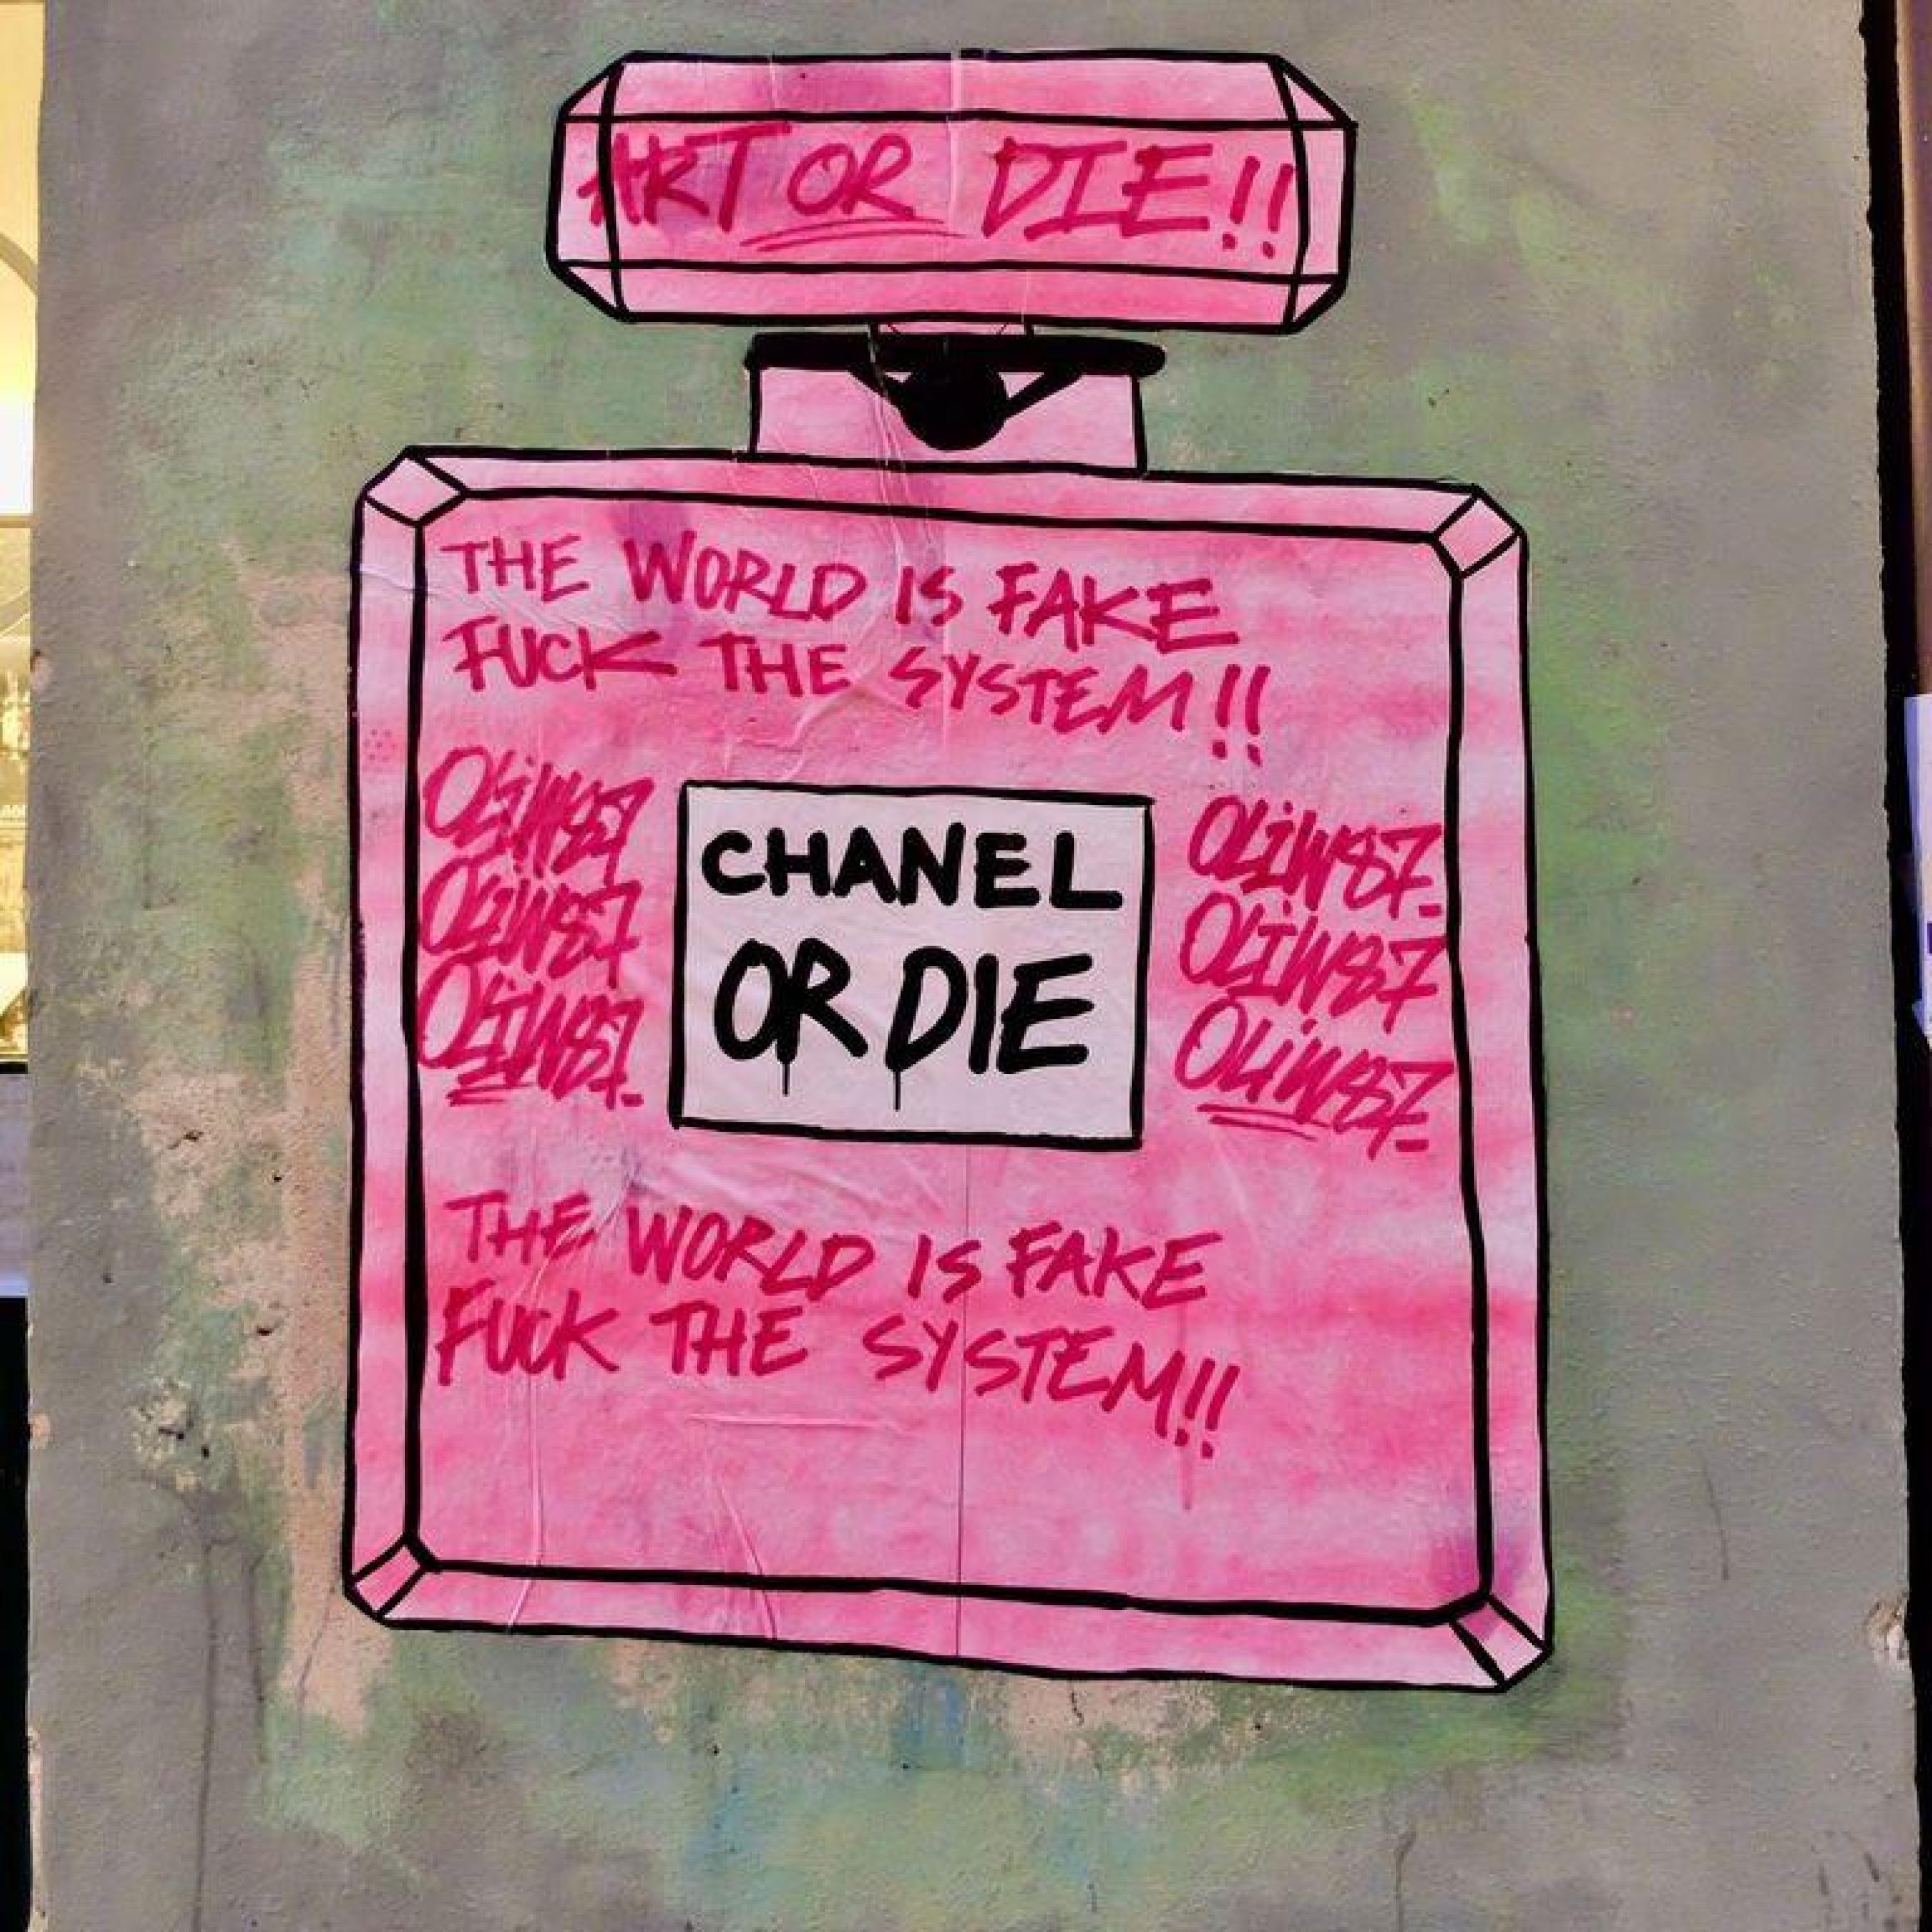 ART OR DIE!!
THE WORLD IS FAKE
FUCK THE SYSTEM!!
OLiW87
OLiW87
OLiW87
CHANEL
OR DIE
OLiW87
OLiW87
OLiW87
THE WORLD IS FAKE
FUCK THE SYSTEM!!